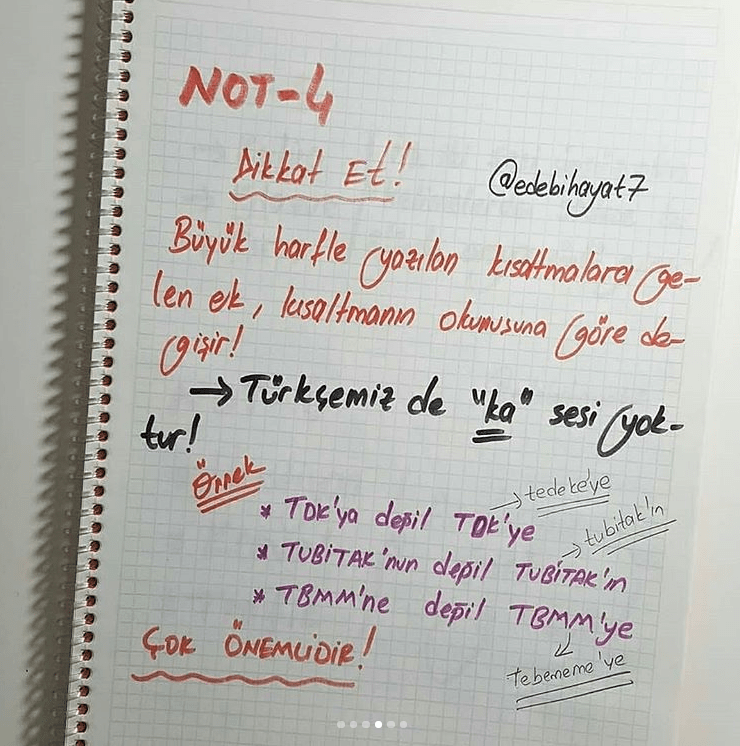 NOT-4
Dikkat Et!
@edebihayat7
Büyük harfle yazılan kısaltmalara ge-
len ek, kısaltmanın okunuşuna göre de-
ğişir!
→ Türkçemiz de "ka" sesi yok-
tur!
Örnek
* TDK'ya değil TDK'ye → tedeke'ye
* TUBİTAK'nun değil TUBİTAK'ın → tubitak'ın
* TBMM'ne değil TBMM'ye
tebememe'ye
ÇOK ÖNEMLİDİR!